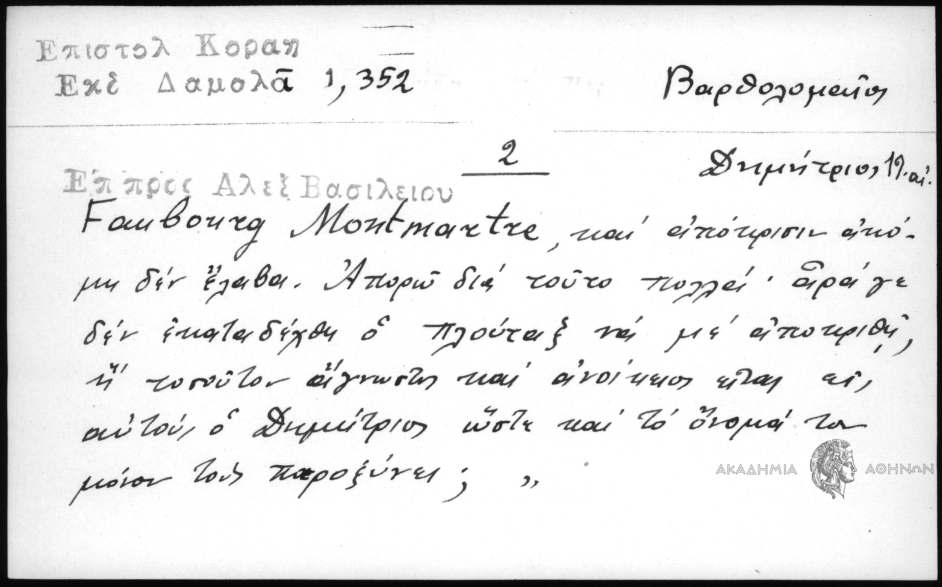 Επιστολ Κοραη
Εκδ Δαμαλᾶ 1,352
Βαρθολομαῖος
2
Δημήτριος 19. αἰ.
Επ προς Αλεξ Βασιλειου
Faubourg Montmartre, καὶ ἀπόκρισιν ἀκό-
μη δέν ἔλαβα. Ἀπορῶ διὰ τοῦτο πολλά· ἆρά γε
δέν ἐκαταδέχθη ὁ πλούταξ νά μέ ἀποκριθῇ,
ἤ τοσοῦτον ἄγνωστος καὶ ἀνοίκειος εἶναι εἰς
αὐτούς ὁ Δημήτριος ὥστε καὶ τὸ ὄνομά του
μόνον τοὺς παροξύνει; "
ΑΚΑΔΗΜΙΑ ΑΘΗΝΩΝ